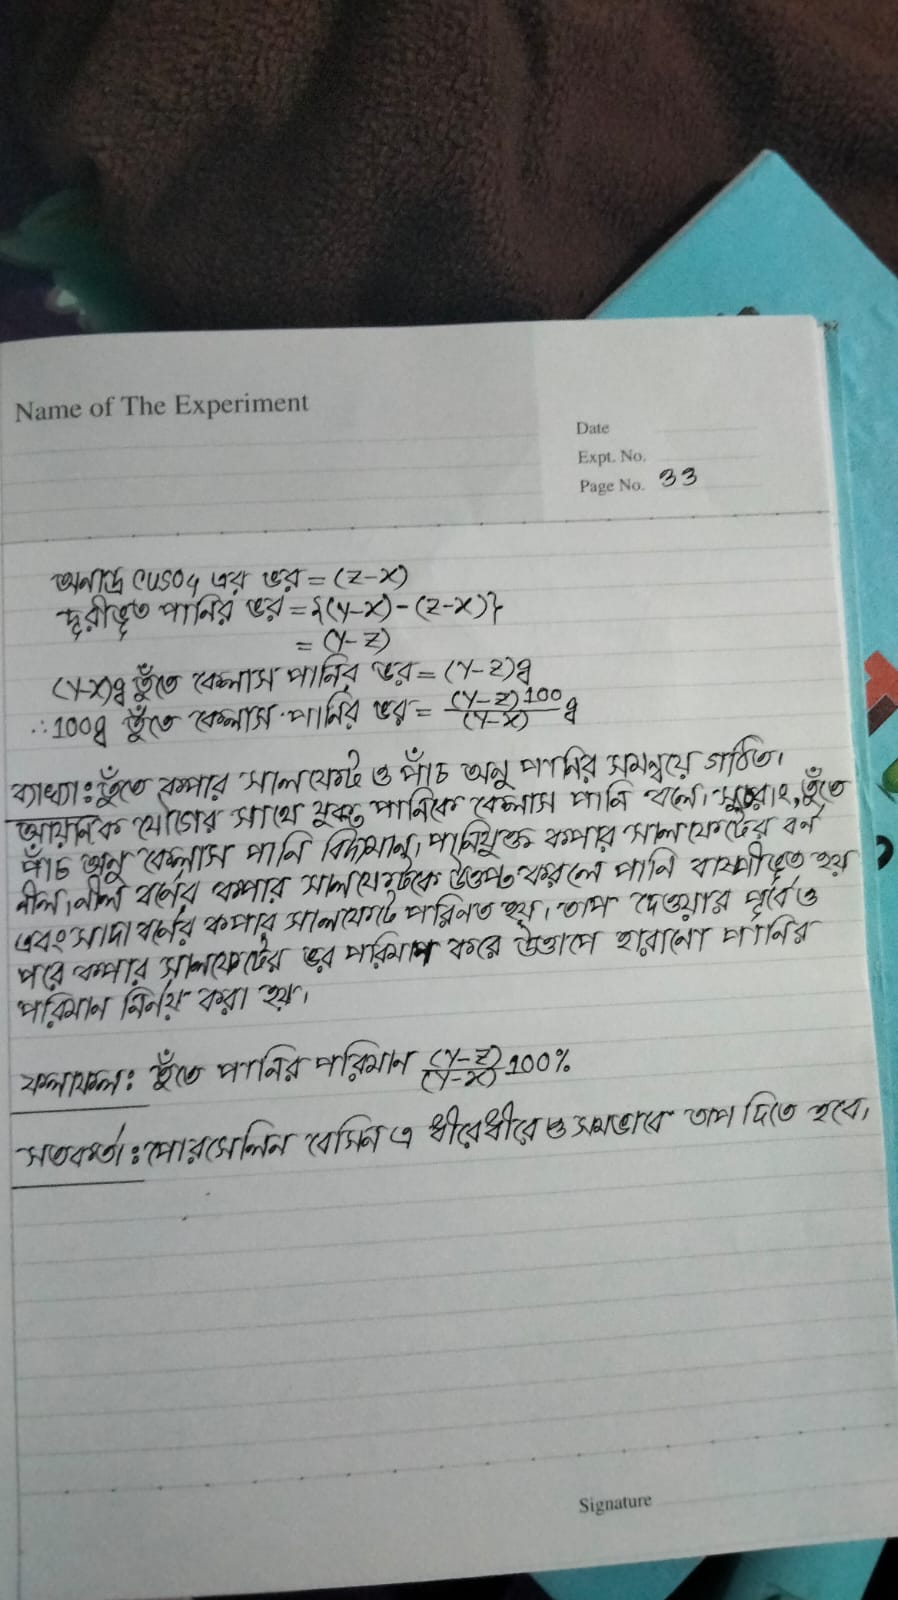 Name of The Experiment
Date
Expt. No.
Page No. 33
অনার্দ্র CUSO4 এর ভর = (Z-X)
দূরীভূত পানির ভর = {(Y-X)-(Z-X)}
= (Y-Z)
(Y-X)g তুঁতে কেলাস পানির ভর = (Y-Z)g
∴100g তুঁতে কেলাস পানির ভর = (Y-Z)100/(Y-X) g
ব্যাখ্যা: তুঁতে কপার সালফেট ও পাঁচ অনু পানির সমন্বয়ে গঠিত।
আয়নিক যৌগের সাথে যুক্ত পানিকে কেলাস পানি বলে। সুতরাং, তুঁতে
পাঁচ অনু কেলাস পানি বিদ্যমান। পানিযুক্ত কপার সালফেটের বর্ন
নীল। নীল বর্ণের কপার সালফেটকে উত্তপ্ত করলে পানি বাষ্পীভূত হয়
এবং সাদা বর্ণের কপার সালফেটে পরিনত হয়। তাপ দেওয়ার পূর্বে ও
পরে কপার সালফেটের ভর পরিমাপ করে উত্তাপে হারানো পানির
পরিমান নির্নয় করা হয়।
ফলাফল: তুঁতে পানির পরিমান (Y-Z)/(Y-X) 100%
সতর্কতা: পোরসেলিন বেসিন এ ধীরেধীরে ও সমভাবে তাপ দিতে হবে।
Signature